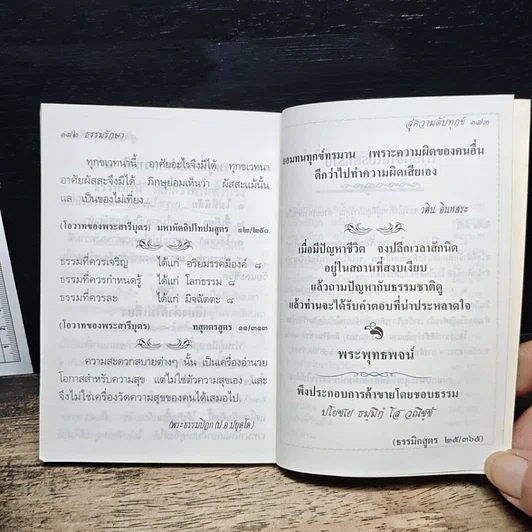 ๑๗๒ ธรรมรักษา
ทุกขเวทนานี้ อาศัยอะไรจึงมีได้ ทุกขเวทนา
อาศัยผัสสะจึงมีได้ ภิกษุย่อมเห็นว่า ผัสสะแม้นั้น
แล เป็นของไม่เที่ยง...
(โอวาทของพระสารีบุตร) มหาหัตถิปโทปมสูตร ๑๒/๒๕๐
ธรรมที่ควรเจริญ ได้แก่ อริยมรรคมีองค์ ๘
ธรรมที่ควรกำหนดรู้ ได้แก่ โลกธรรม ๘
ธรรมที่ควรละ ได้แก่ มิจฉัตตะ ๘
(โอวาทของพระสารีบุตร) ทสุตตรสูตร ๑๑/๓๑๓
ความสะดวกสบายต่างๆ นั้น เป็นเครื่องอำนวย
โอกาสสำหรับความสุข แต่ไม่ใช่ตัวความสุขเอง และ
จึงไม่ใช่เครื่องวัดความสุขของคนได้เสมอไป.
(พระธรรมปิฎก (ป.อ.ปยุตโต)
สู่ความดับทุกข์ ๑๗๓
ยอมทนทุกข์ทรมาน เพราะความผิดของคนอื่น
ดีกว่าไปทำความผิดเสียเอง
วศิน อินทสระ
เมื่อมีปัญหาชีวิต จงปลีกเวลาสักนิด
อยู่ในสถานที่สงบเงียบ
แล้วถามปัญหากับธรรมชาติดู
แล้วท่านจะได้รับคำตอบที่น่าประหลาดใจ
พระพุทธพจน์
พึงประกอบการค้าขายโดยชอบธรรม
ปโยชเย ธมฺมิกํ โส วณิชฺชํ
(ธรรมิกสูตร ๒๕/๓๖๕)